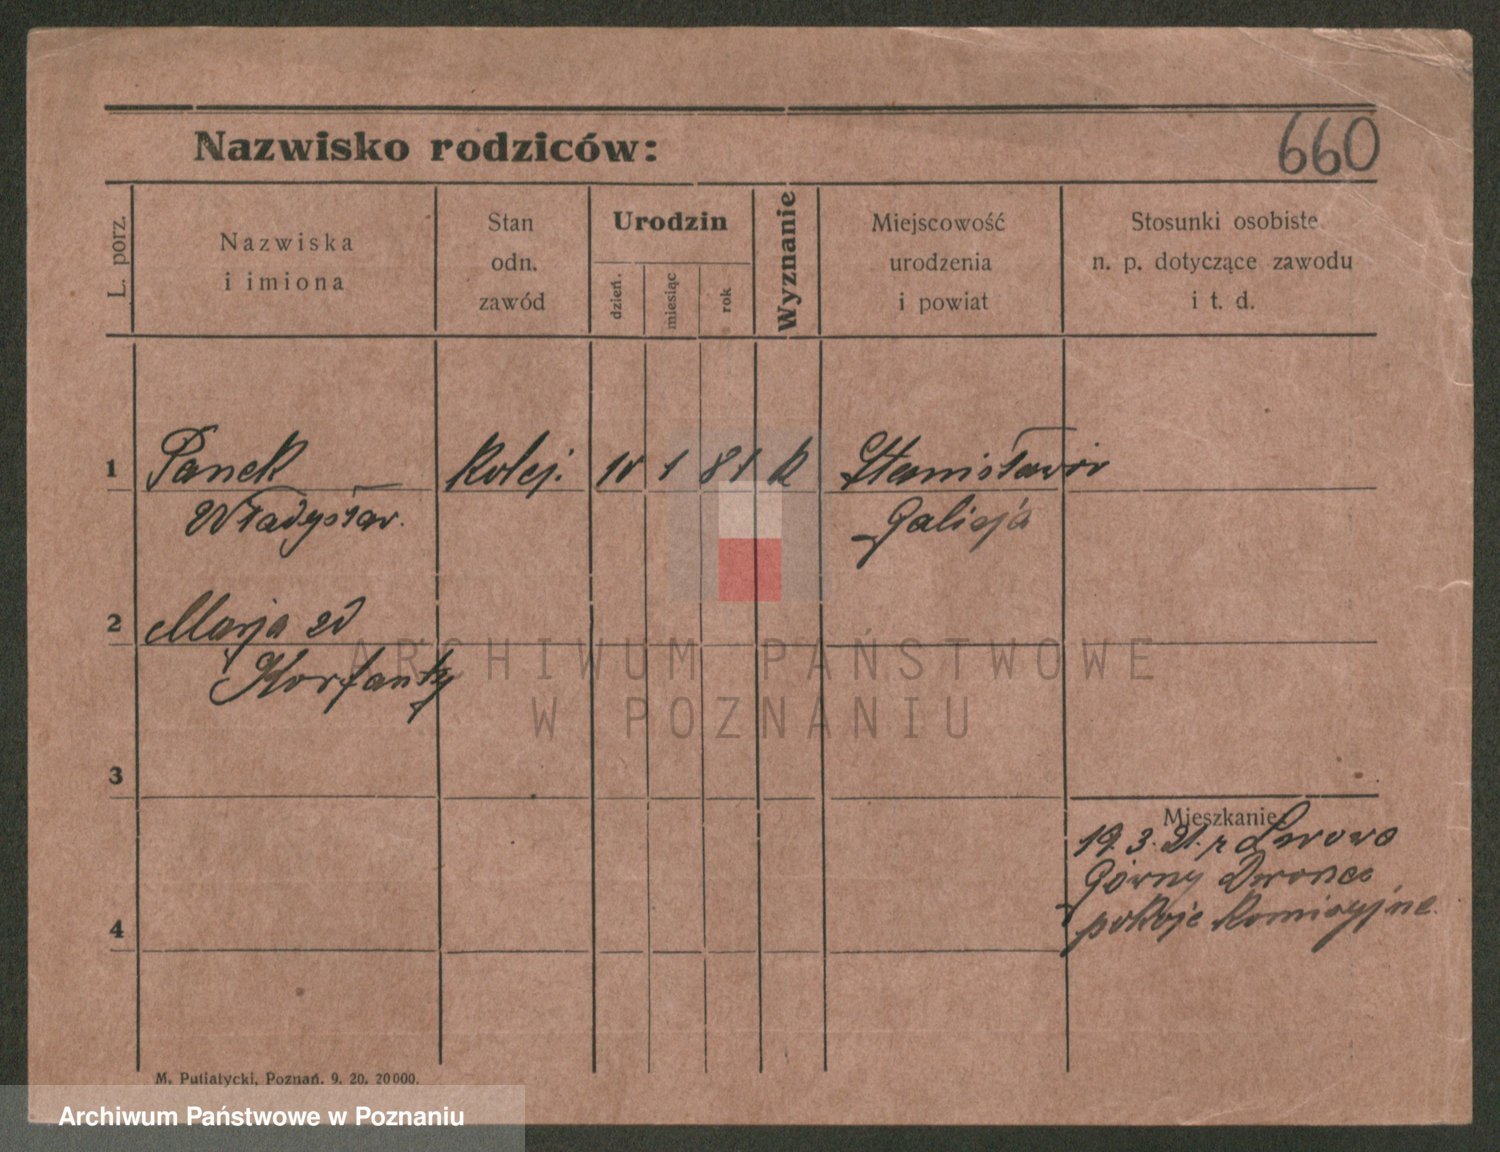 Nazwisko rodziców:
660
L. porz.
Nazwiska
i imiona
Stan
odn.
zawód
Urodzin
dzień.
miesiąc
rok
Wyznanie
Miejscowość
urodzenia
i powiat
Stosunki osobiste
n. p. dotyczące zawodu
i t. d.
1 Panek Kolej. 10 1 81 K Stanisławów
Władysław. Galicja
2 Marja zd
Korfanty
3
Mieszkanie:
19.3.21. z Lwowa
Górny Dworzec
pokoje Komisyjne.
4
M. Putiatycki, Poznań. 9. 20. 20000.
ARCHIWUM PAŃSTWOWE
W POZNANIU
Archiwum Państwowe w Poznaniu